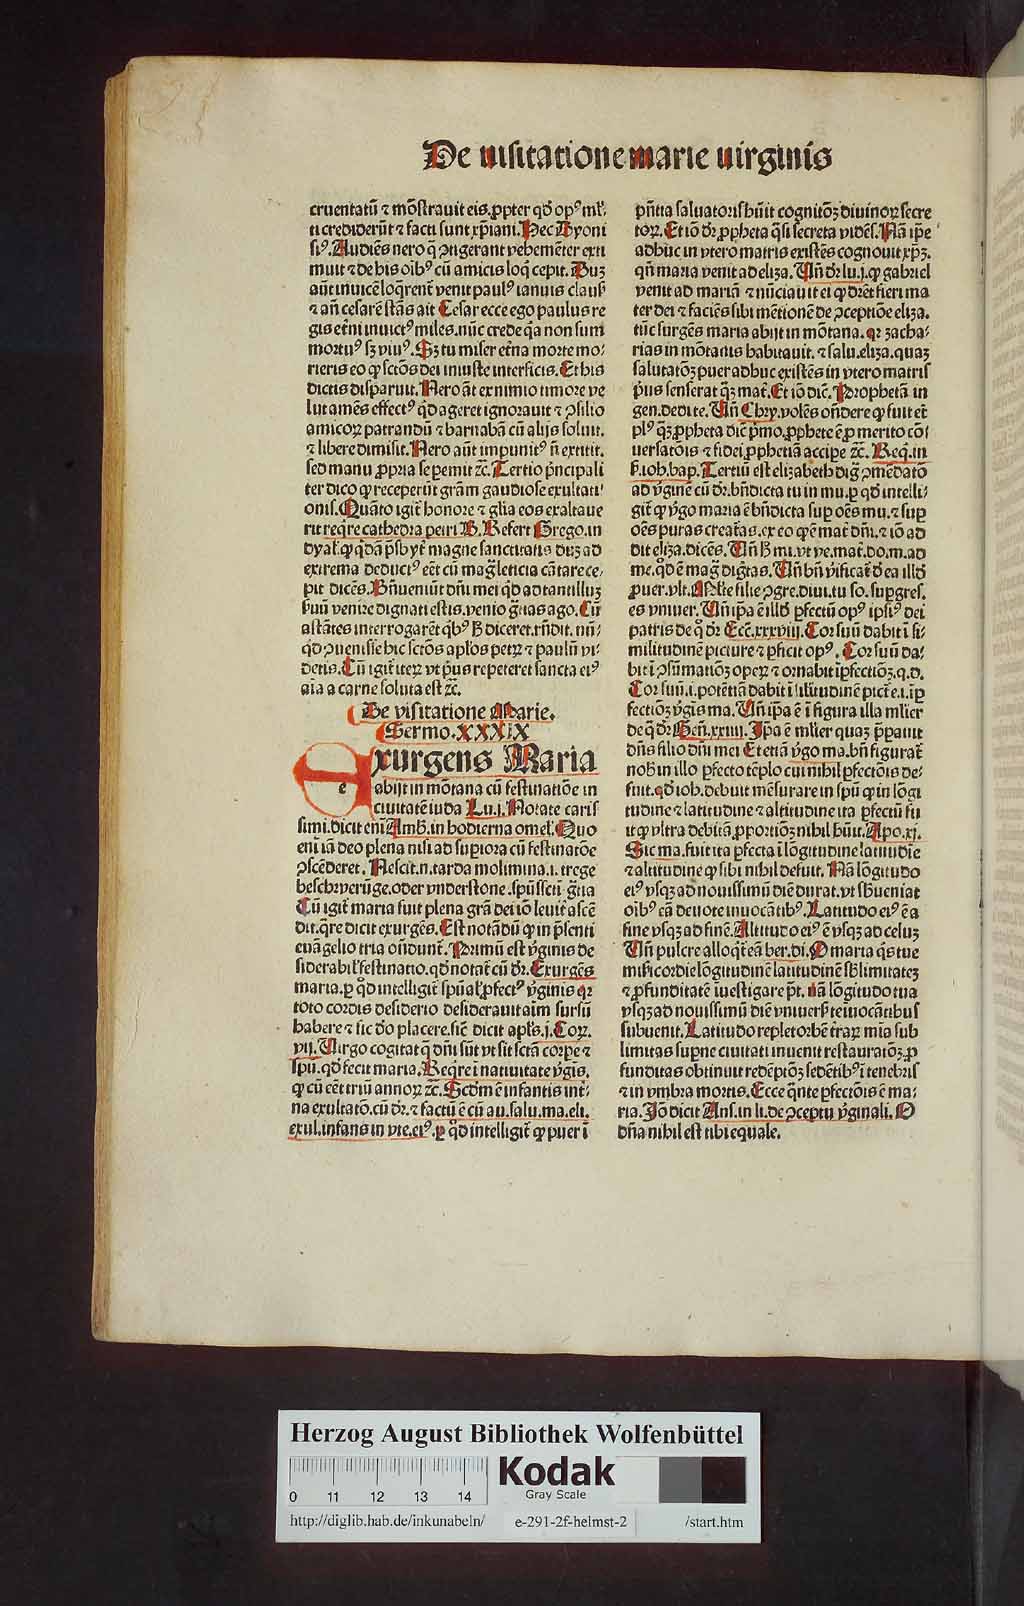 De uisitatione marie uirginis
cruentatū ⁊ mōstrauit eis.ꝓpter qḋ opꝰ ml̄-
ti crediderūt ⁊ facti sunt xp̄iani. Hec Dyoni
siꝰ. Audiēs nero q̄ ꝯtigerant vehemēter exti
muit ⁊ de his oībꝰ cū amicis loq̄ cepit. Duꝫ
aūt inuicē loq̄rent᷒ venit paulꝰ ianuis clausꝭ
⁊ añ cesarē stās ait Cesar ecce ego paulus re
gis et̄ni inuictꝰ miles.nūc crede q̄a non sum
mortuꝰ sꝫ viuꝰ. Sꝫ tu miser et̄na morte mo-
rieris eo ꝙ sctōs dei iniuste interficis. Et his
dictis disparuit. Nero āt ex nimio timore ve
lut amēs effectꝰ qḋ ageret ignorauit ⁊ ꝯsilio
amicoꝝ patrandū ⁊ barnabā cū alijs soluit.
⁊ libere dimisit. Nero aūt impunitꝰ ñ extitit.
sed manu ꝓpria se pemit ⁊c̄. Tertio p̄ncipali
ter dico ꝙ receperūt grām gaudiose exultati-
onis. Quāto igit᷒ honore ⁊ gl̄ia eos exaltaue
rit req̄re cathedra petri B. Refert Grego.in
dyal᷒.ꝙ q̄dā p̄sbyt᷒ magne sanctitatis duꝫ ad
extrema deductꝰ eēt cū mag᷒ leticia cātare ce-
pit dicēs. Bn̄ueniūt dn̄i mei qḋ ad tantilluꝫ
ẜuū venire dignati estis.venio gr̄as ago. Cū
astātes interrogarēt q̄bꝰ ꝭ diceret.rn̄dit. nū-
qḋ ꝯuenisse hic sctōs aplōs petꝝ ⁊ paulū vi-
detis. Cū igit᷒ iteꝝ vt p̄us repeteret sancta eiꝰ
aīa a carne soluta est ⁊c̄.
De visitatione Marie.
Sermo.XXXIX
Exurgens Maria
abijt in mōtana cū festinatiōe in
ciuitatē iuda Lu.i. Notate cariſ
simi.dicit enī Amb᷒.in hodierna omel᷒. Quo
enī iā deo plena nisi ad supiora cū festinatōe
ꝯscēderet. Nescit.n.tarda molimina.i.trege
beschweruge.oder vnderstone.spūssctī gr̄ia
Cū igit᷒ maria fuit plena grā dei iō leuit᷒ ascē
dit.q̄re dicit exurgēs. Est notādū ꝙ in p̄senti
euāgelio tria oñdunt᷒. Primū est v̄ginis de
siderabil᷒ festinatio.qḋ notat᷒ cū dr̄. Exurgēs
maria.ꝑ qḋ intelligit᷒ spūal᷒ ꝓfectꝰ v̄ginis qꝛ
toto cordis desiderio desiderauit aīm sursū
habere ⁊ sic dō placere.sic̄ dicit apl̄s.i.Coꝝ.
vij. Virgo cogitat q̄ dn̄i sūt vt sit sctā corpe ⁊
spū.qḋ fecit maria. Req̄re i natiuitate v̄gis.
ꝙ cū eēt triū annoꝝ ⁊c̄. Scḋm ē infantis int᷒-
na exultatō.cū dr̄.⁊ factū ē cū au.salu.ma.eli.
exul.infans in vte.eiꝰ.ꝑ qḋ intelligit᷒ ꝙ puer ī
pn̄tia saluatoris hūit cognitōꝫ diuinoꝝ secre
toꝝ. Et iō dr̄.ꝓpheta q̄si secreta vidēs. Nā ip̄e
adhuc in vtero matris existēs cognouit xp̄ꝫ.
qn̄ maria venit ad eliza. Uñ dr̄ lu.i.ꝙ gabriel
venit ad mariā ⁊ nūciauit ei ꝙ dr̄et fieri ma
ter dei ⁊ faciēs sibi mētionē de ꝯceptiōe eliza.
tūc surgēs maria abijt in mōtana.qꝛ zacha-
rias in mōtanis habitauit.⁊ salu.eliza.quaꝫ
salutatōꝫ puer adhuc existēs in vtero matris
p̄us senserat q̄ꝫ mat᷒. Et iō dic̄. Prophetā in
gen.dedi te. Uñ Chry.volēs oñdere ꝙ fuit et᷒
plꝰ q̄ꝫ ꝓpheta dic̄ p̄mo.ꝓphete ē ꝓ merito cō-
uersatōis ⁊ fidei ꝓphetiā accipe ⁊c̄. Req̄.in
ẜ.ioh.bap. Tertiū est elizabeth dig᷒ ꝯmēdatō
ad v̄ginē cū dr̄.bn̄dicta tu in mu.ꝑ qḋ intelli-
git᷒ ꝙ v̄go maria ē bn̄dicta sup oēs mu.⁊ sup
oēs puras creat᷒as.ex eo ꝙ ē mat᷒ dn̄i.⁊ iō ad
dit eliza.dicēs. Uñ ꝭ mi.vt ve.mat᷒.do.m.ad
me.qḋ ē mag᷒ dig᷒tas. Uñ bn̄ v̄ificat᷒ d̄ ea illḋ
ꝓuer.vlt. Ml̄te filie ꝯgre.diui.tu so.supgres.
es vniuer. Uñ ip̄a ē illḋ ꝓfectū opꝰ ipsiꝰ dei
patris de q̊ dr̄ Ecc̄.xxxviij. Cor suū dabit ī si-
militudinē picture ⁊ ꝓficit opꝰ. Cor suū da-
bit ī ꝯsūmatiōꝫ opeꝝ ⁊ ornabit ip̄fectiōꝫ.q.d.
Cor suū.i.potētiā dabit ī sil̄itudinē pict᷒e.i.īꝑ
fectiōꝫ v̄gis ma. Uñ ip̄a ē ī figura illa mlier
de q̄ dr̄ Gen̄.xxiiij. Ip̄a ē mlier quaꝫ p̄parauit
dn̄s filio dn̄i mei Et etiā v̄go ma.bn̄ figurat᷒
nob᷒ in illo ꝓfecto tēplo cui nihil ꝓfectiōis de-
fuit.qḋ ioh.debuit mēsurare in spū ꝙ in lōgi
tudine ⁊ latitudine ⁊ altitudine ita ꝓfectū fu
it ꝙ vltra debitā ꝓportiōꝫ nihil hūit. Apo.xj.
Sic ma.fuit ita ꝓfecta ī lōgitudine latitudīe
⁊ altitudine ꝙ sibi nihil defuit. Nā lōgitudo
eiꝰ vsqꝫ ad nouissimū diē durat.vt sb̄ueniat
oībꝰ eā deuote inuocātibꝰ. Latitudo eiꝰ ē a
fine vsqꝫ ad finē. Altitudo eiꝰ ē vsqꝫ ad celuꝫ
Uñ pulcre alloq̄t᷒ eā ber.di. O maria q̄s tue
mīsericordie lōgitudinē latitudinē sb̄limitateꝫ
⁊ ꝓfunditatē īuestigare p̄t. nā lōgitudo tua
vsqꝫ ad nouissimū diē vniuersꝭ te īuocātibus
subuenit. Latitudo replet orbē t᷒raꝝ mīa sub
limitas supne ciuitati inuenit restauratiōꝫ.ꝓ
funditas obtinuit redēptiōꝫ sedētibꝰ ī tenebris
⁊ in vmbra mortis. Ecce q̄nte ꝓfectōis ē ma-
ria. Iō dicit Ans.in li.de ꝯceptu v̄ginali. O
dn̄a nihil est tibi equale.
e
Herzog August Bibliothek Wolfenbüttel
Kodak
Gray Scale
0 11 12 13 14
http://diglib.hab.de/inkunabeln/ e-291-2f-helmst-2 /start.htm